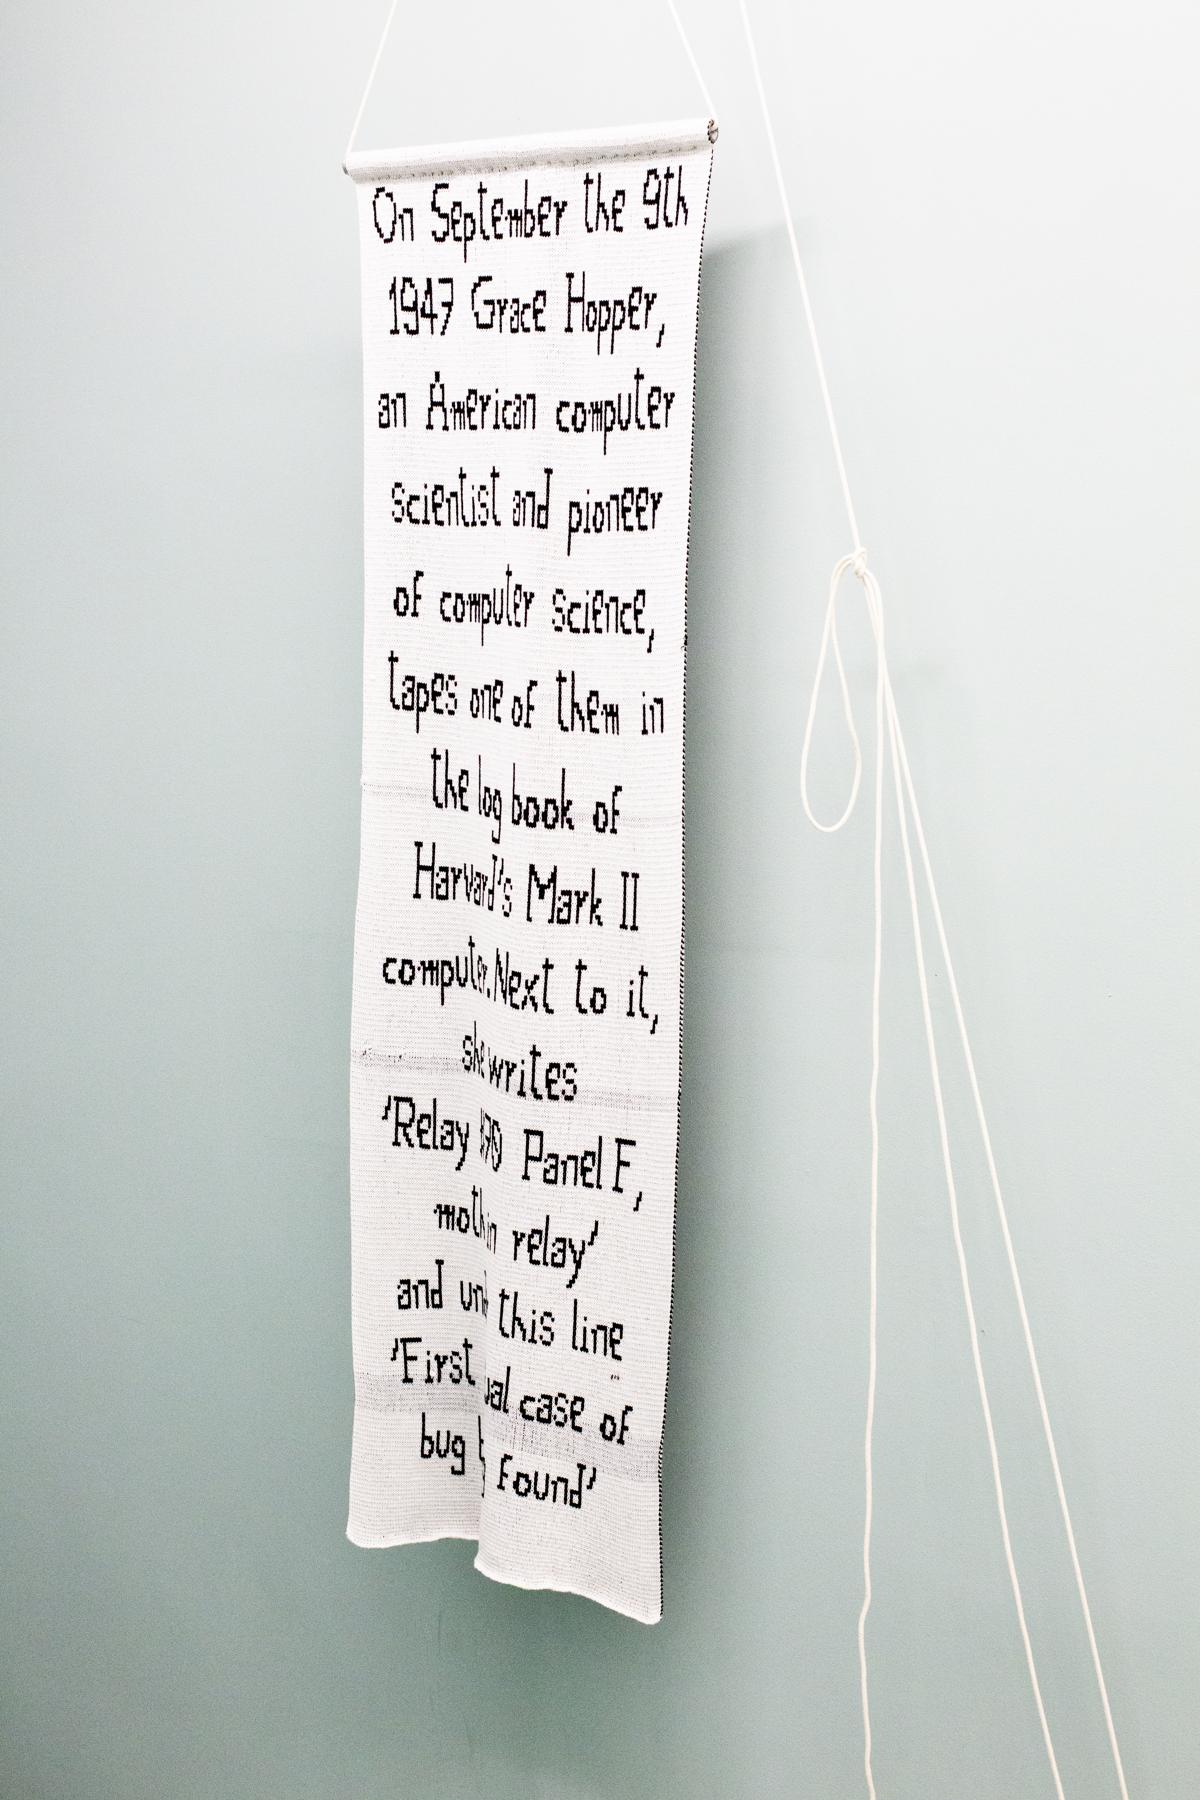 On September the 9th
1947 Grace Hopper,
an American computer
scientist and pioneer
of computer science,
tapes one of them in
the log book of
Harvard's Mark II
computer. Next to it,
she writes
'Relay Panel F,
moth in relay'
and this line
'First case of
bug found'